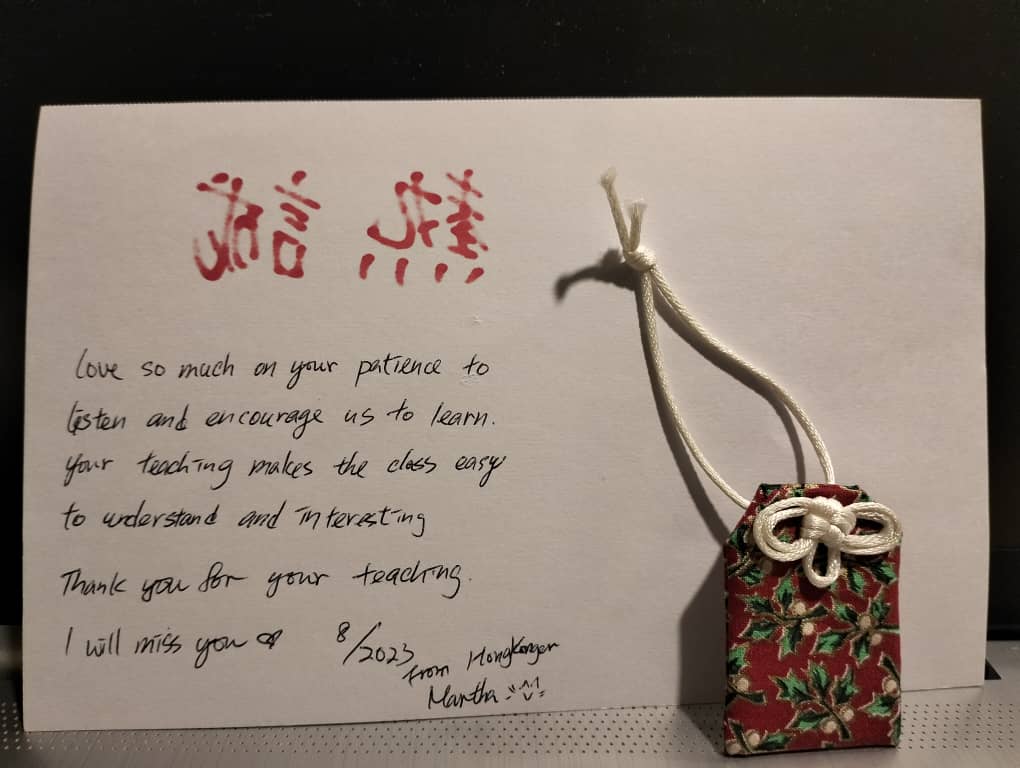 熱誠
Love so much on your patience to
listen and encourage us to learn.
Your teaching makes the class easy
to understand and interesting
Thank you for your teaching.
I will miss you ♡ 8/2023
from Hongkonger
Martha